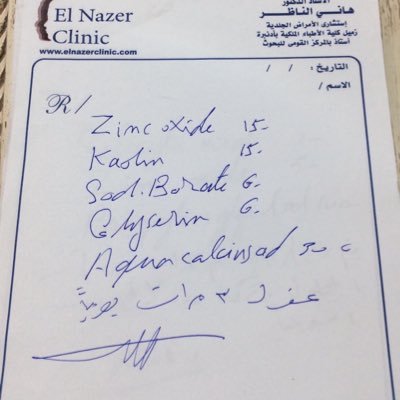 El Nazer
Clinic
www.elnazerclinic.com
الأستاذ الدكتور
هاني الناظر
إستشارى الأمراض الجلدية
زميل كلية الأطباء الملكية بأدنبرة
أستاذ بالمركز القومى للبحوث
التاريخ : / /
الاسم /
R/
Zinc oxide 15.
Kaolin 15.
Sod. Borate 6.
Glyserin 6.
Aqua calcis ad 30 c
٣ مرات يومياً